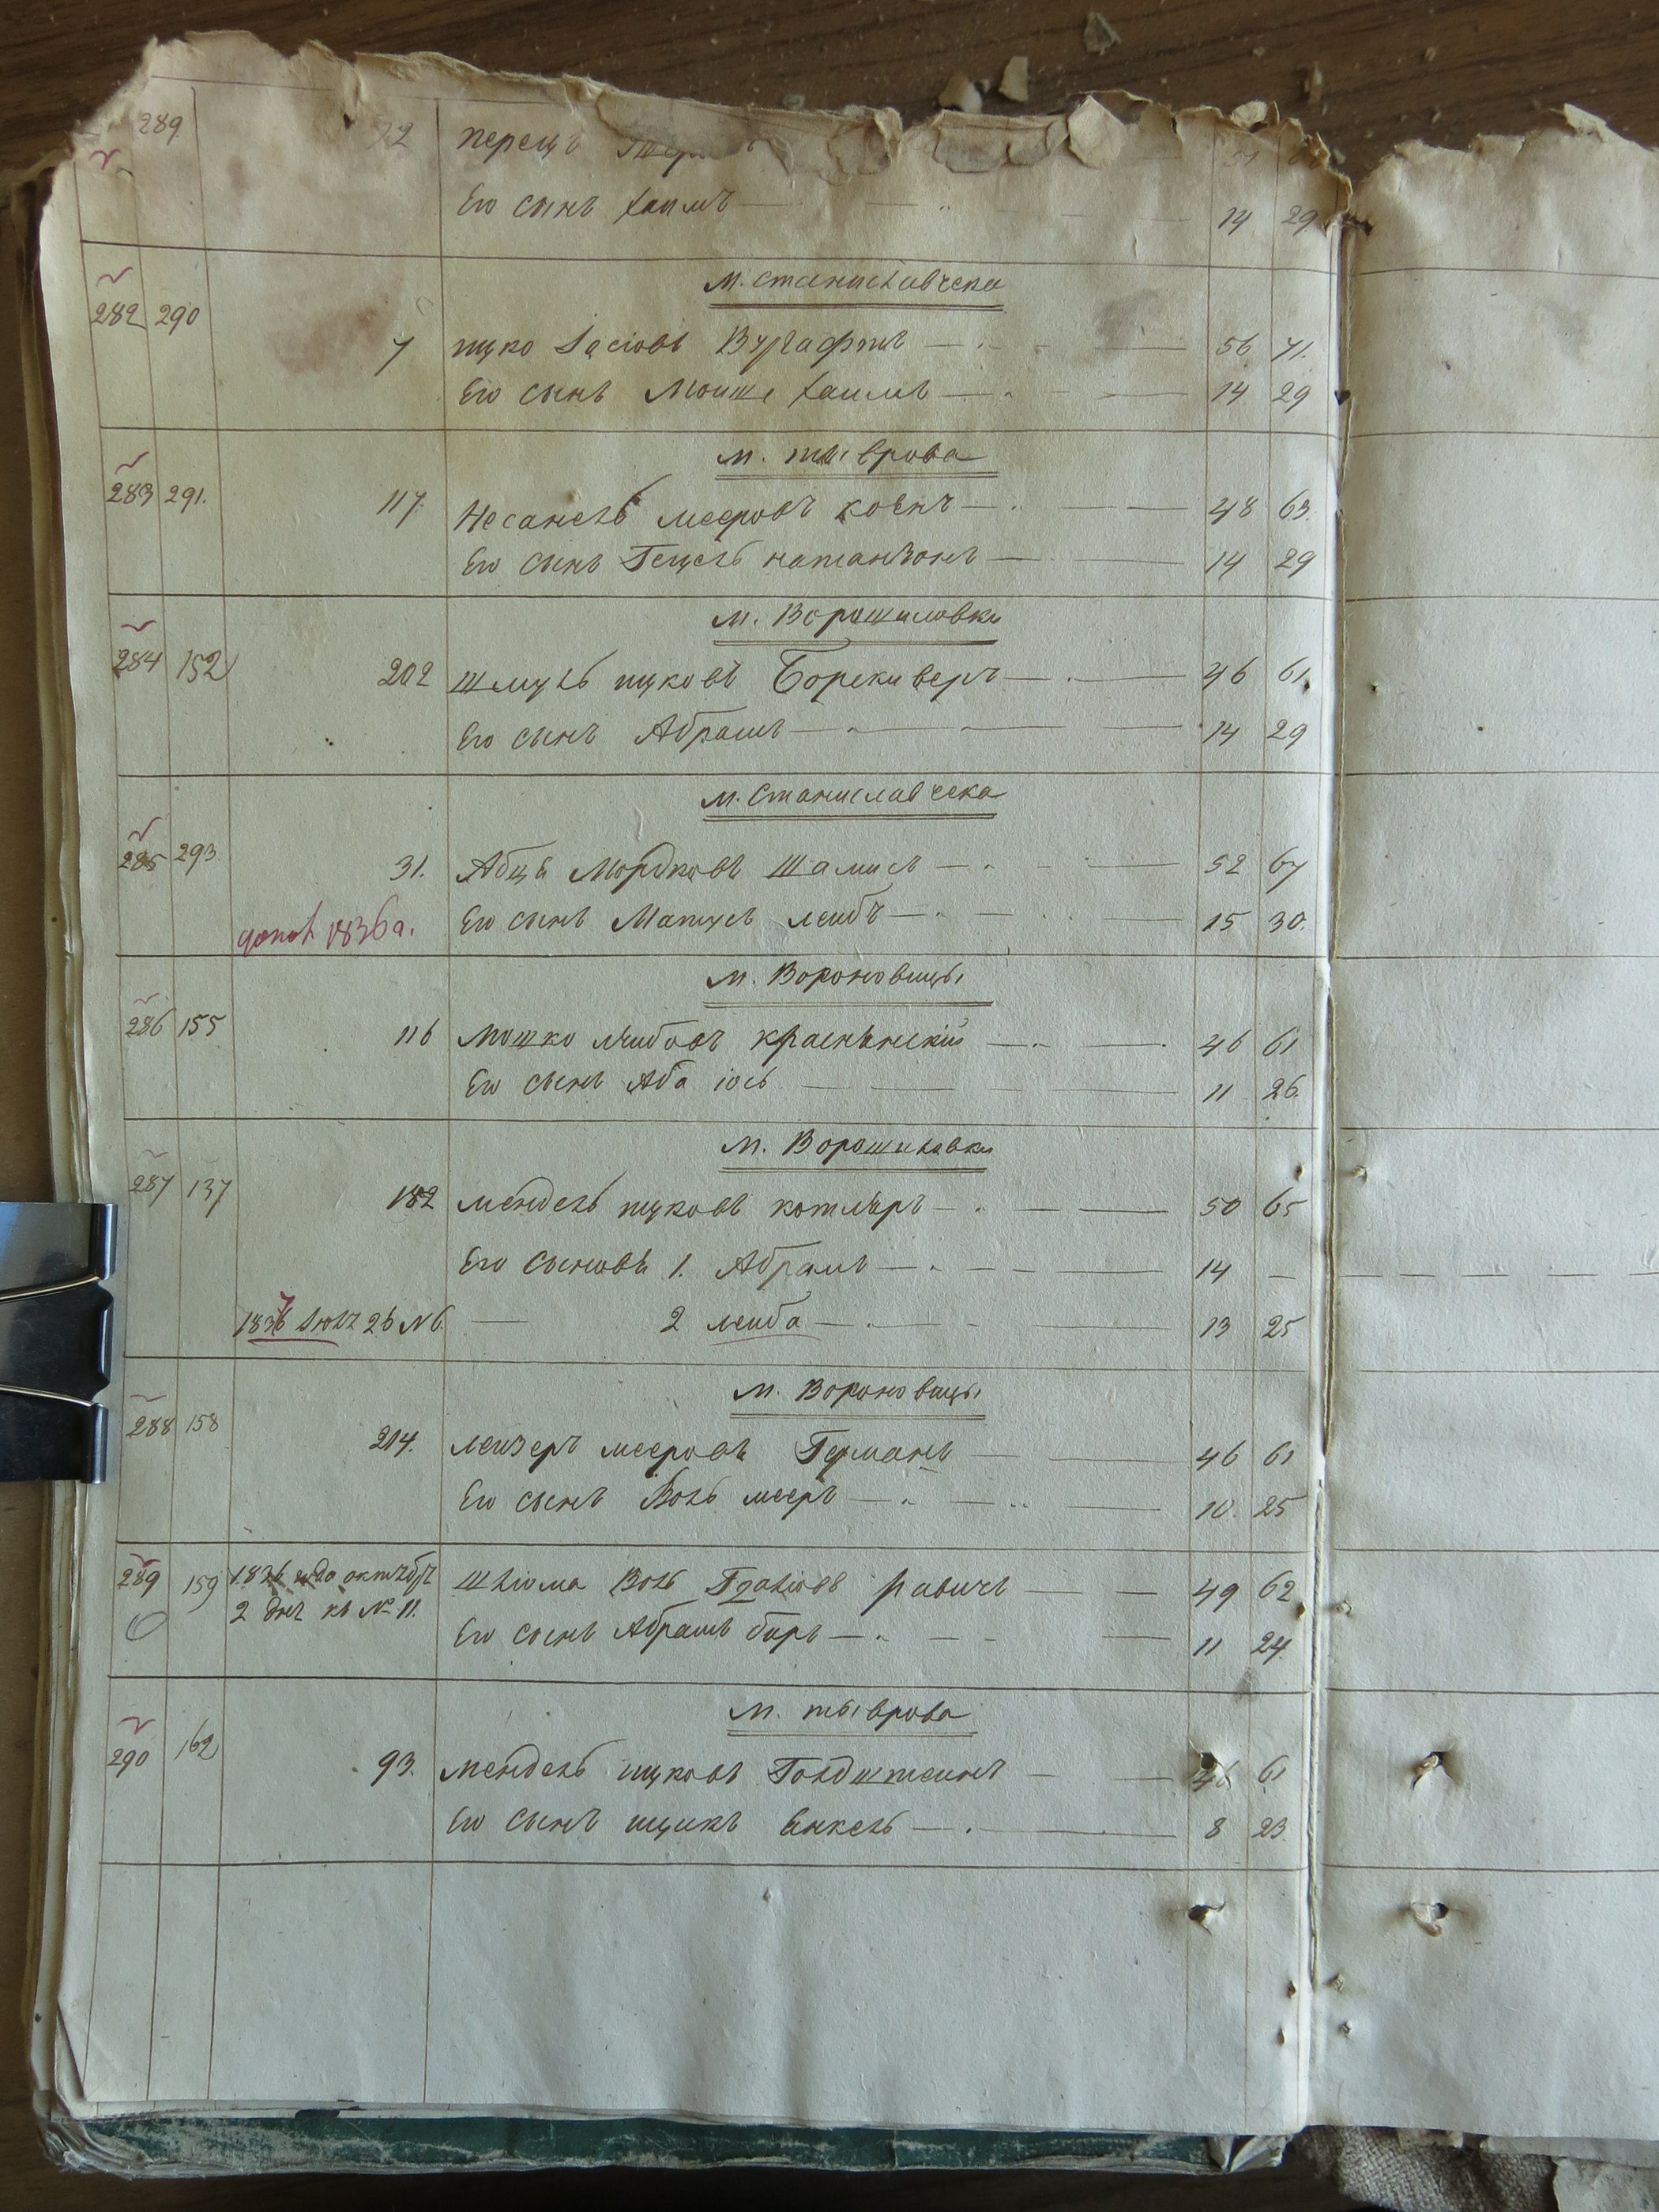 289 72 Перецъ
Его сынъ Хаимъ 14 29
м. Станиславчека
282 290 7 Ицко Іосіовъ Вургафтъ 56 71.
Его сынъ Мошке Хаимъ 14 29
м. тыврова
283 291. 117. Несанель мееровъ коенъ 48 63.
Его сынъ Гецель натанзонъ 14 29
м. Ворошиловки
284 152 202 Шмуль ицковъ Борскиверъ 46 61.
Его сынъ Абрамъ 14 29
м. Станиславчека
285 293 31. Абць Мордковъ Шамисъ 52 67
1836 г. Его сынъ Матусъ леибъ 15 30.
м. Вороновицы
286 155 116 Мошко леибовъ краснянский 46 61
Его сынъ Аба іось 11 26.
м. Ворошиловки
287 137 182 Мендель ицковъ котляръ 50 65
Его сыновья 1. Абрамъ 14 —
26 № 6. — 2 леиба 13 25
м. Вороновицы
288 158 214. леизеръ мееровъ Германъ 46 61
Его сынъ Воль мееръ 10. 25
289 159 1836 года октября Шліома Воль рабичъ 49 62
2 дня къ № 11. Его сынъ Абрамъ беръ 11 24.
м. тыврова
290 162 93. Мендель ицковъ Голдштеинъ 46 61
Его сынъ ицикъ Янкель 8 23